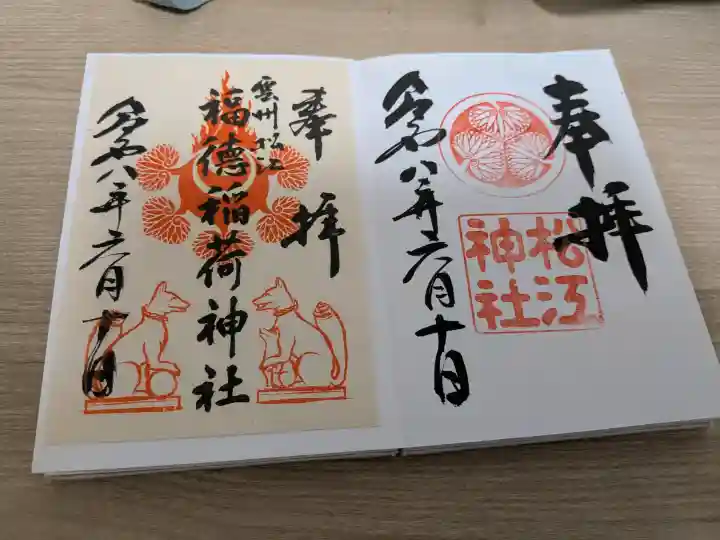 奉拝
松江
神社
令和八年六月十日
奉拝
雲州松江
福徳稲荷神社
令和八年六月十日